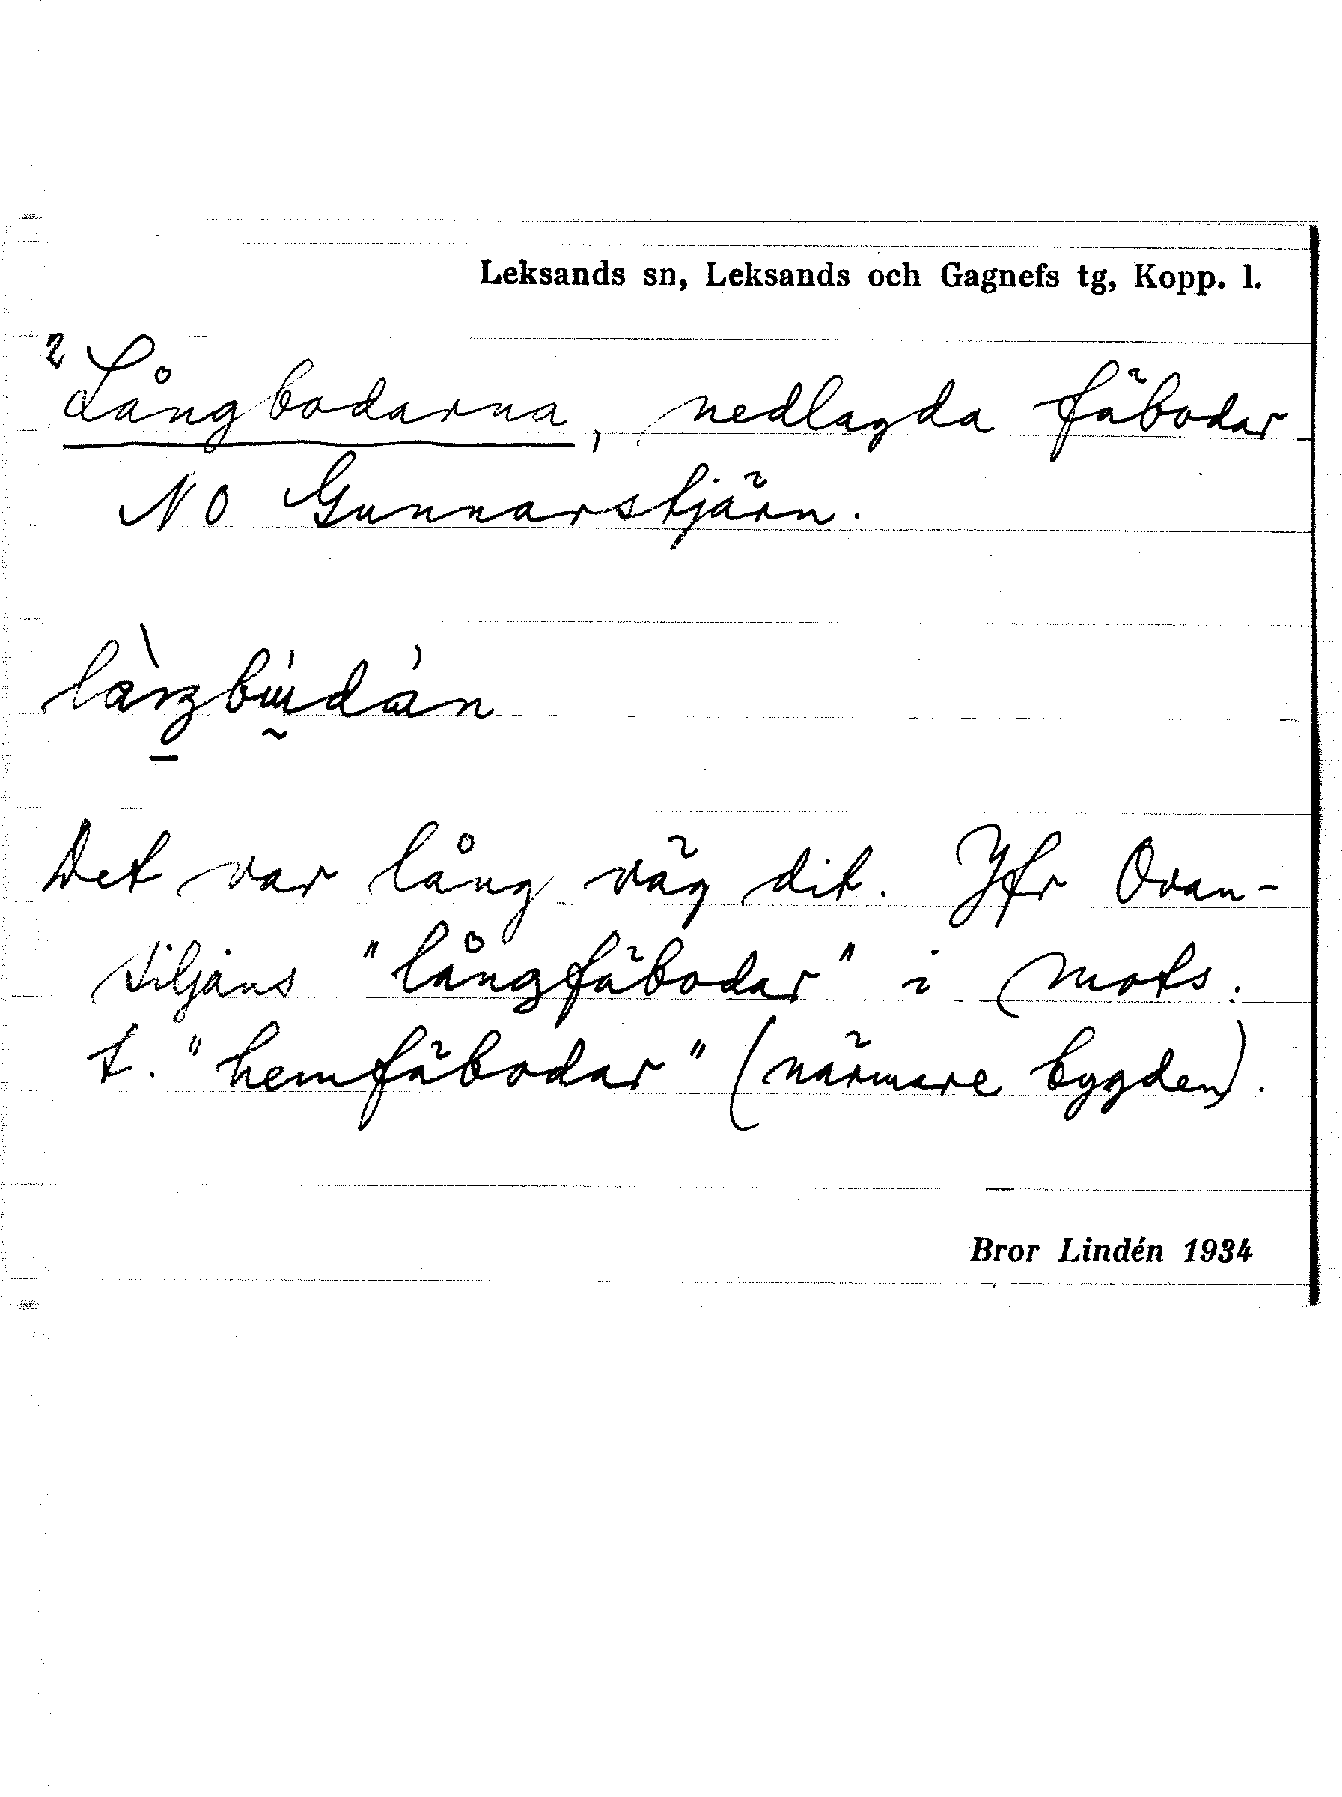 Leksands sn, Leksands och Gagnefs tg, Kopp. l.
2 Långbodarna, nedlagda fäbodar
NO Gunnarstjärn.
Det var lång väg dit. Jfr Ovan-
siljans "långfäbodar" i mots.
t. "hemfäbodar" (närmare bygden).
Bror Lindén 1934